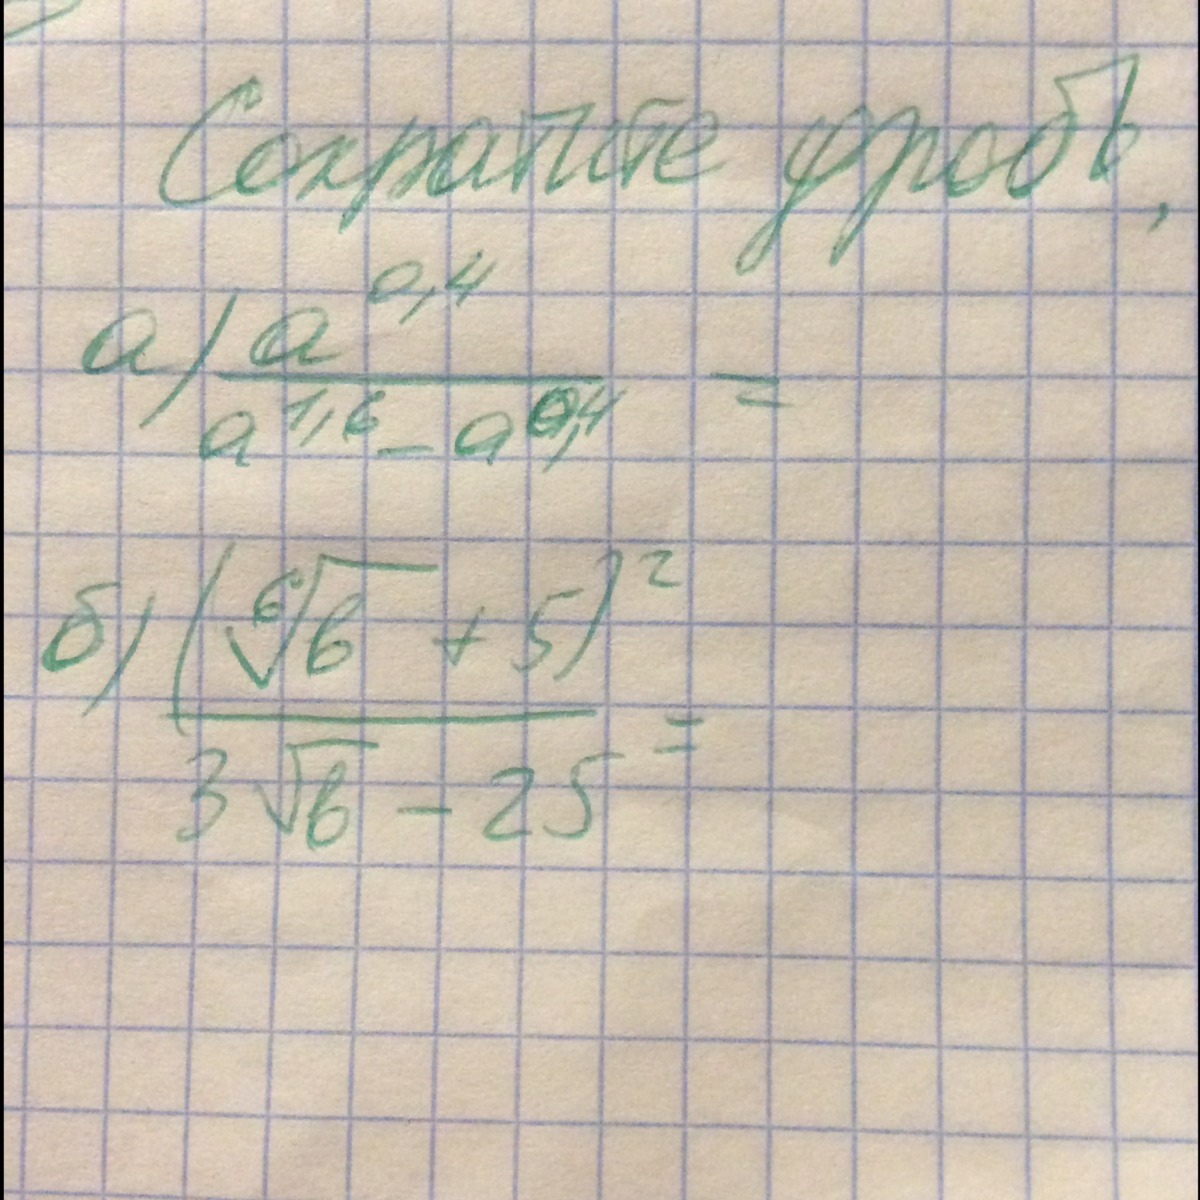 Сократите дробь,
а) a^0,4 / (a^1,6 - a^0,4) =
б) (⁶√b + 5)² / (3√b - 25) =